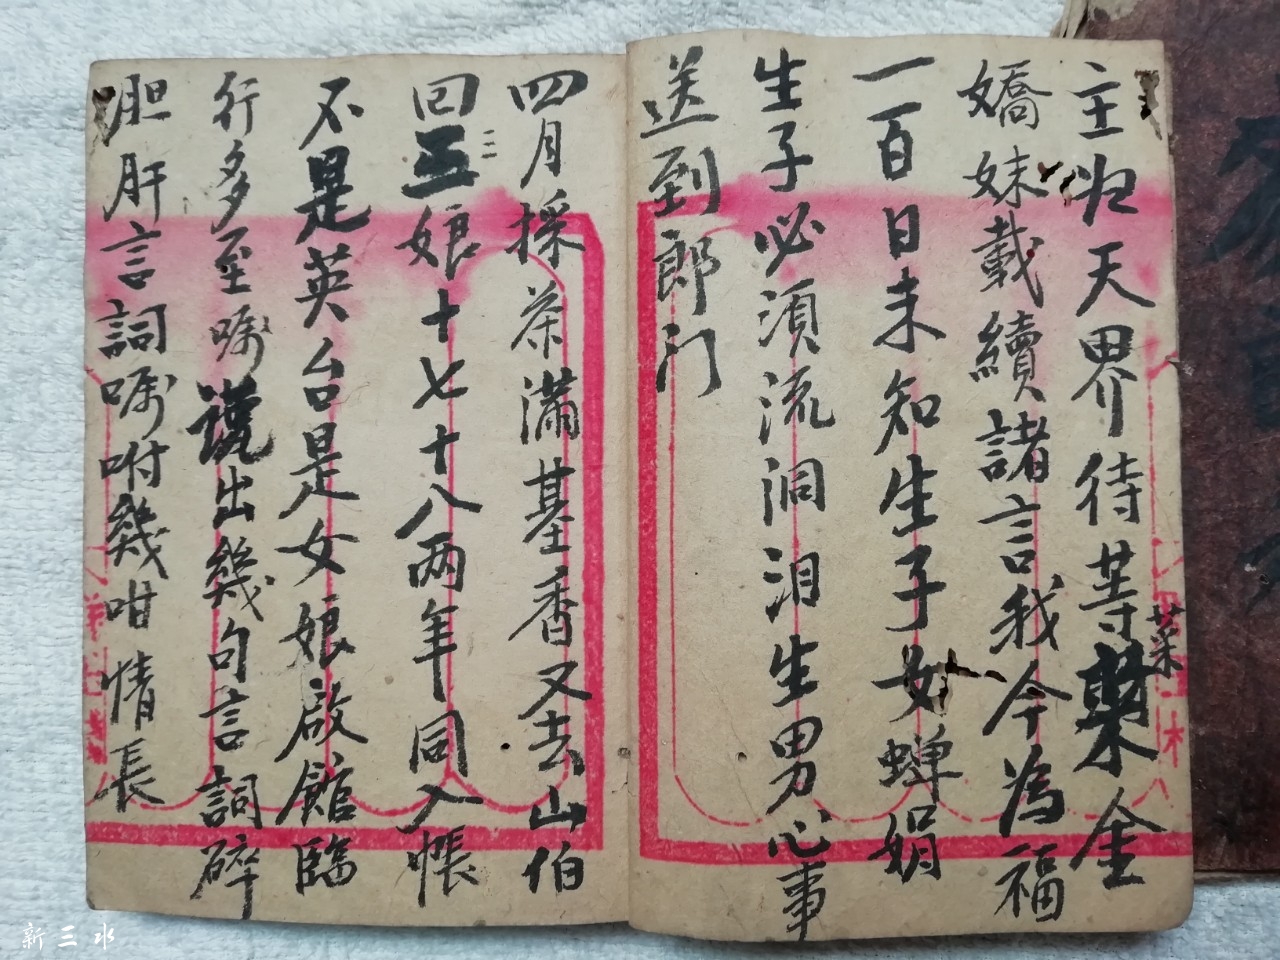 主归天界待等菜金
菜
嬌妹載續諸言我今為福
一百日未知生子女蝉娟
生子必須流洞泪生男心事
送到郎门
四月採茶滿基香又去山伯
回三娘十七十八两年同入帳
不是英台是女娘啟館臨
行多至嘱謊出幾句言詞碎
胆肝言詞嘱咐幾咁情長
新三水